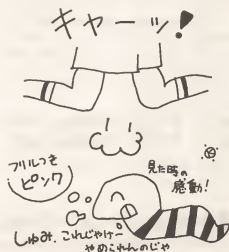 キャーッ!
フリルつき
ピンク
見た時の
感動!
しゅみ、これじゃけー
やめられんのじゃ